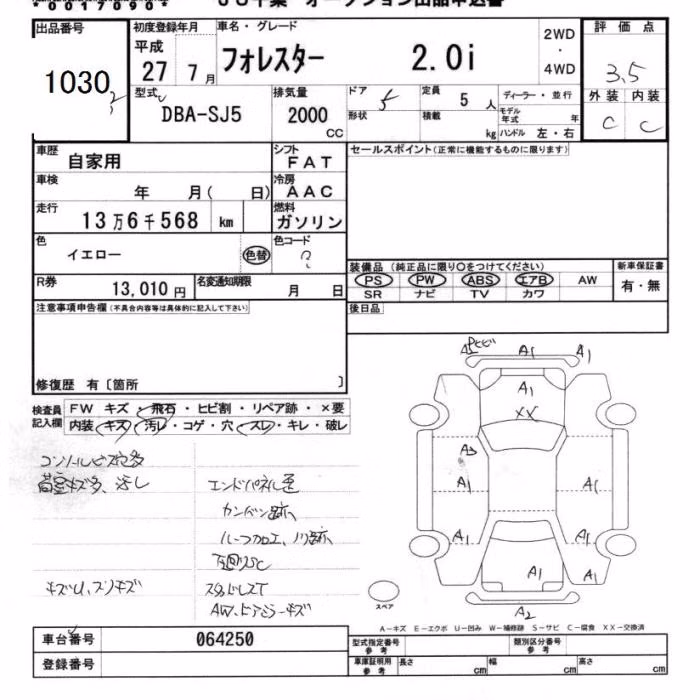 出品番号
1030
初度登録年月
平成
27 7月
車名・グレード
フォレスター 2.0i
2WD
・
4WD
評価点
3.5
外装 内装
C C
型式
DBA-SJ5
排気量
2000
CC
ドア
5
形状
定員
5 人
積載
kg
ディーラー・並行
モデル
年式 年
ハンドル 左・右
車歴
自家用
シフト
FAT
車検
年 月( 日)
冷房
AAC
走行
13万6千568 km
燃料
ガソリン
色
イエロー
色替
色コード
?
R券
13,010 円
名変通知期限
月 日
セールスポイント(正常に機能するものに限ります)
装備品 (純正品に限り○をつけてください)
PS PW ABS エアB AW
SR ナビ TV カワ
新車保証書
有・無
後日品
注意事項申告欄(不具合内容等は具体的に記入して下さい)
修復歴 有〔箇所 〕
検査員
記入欄
FW キズ・飛石・ヒビ割・リペア跡・×要
内装 キズ・汚レ・コゲ・穴・スレ・キレ・破レ
荷室キズ多、汚レ
エンドパネル
カンバン跡
ルーフカエ、ノリ跡
下回りSC
キズU、スリキズ
スタッドレスT
AW、ドアミラーキズ
A1 A1
A1
XX
A3
A1 A1
A1 A1
A1 A1
A2
スペア
A-キズ E-エクボ U-凹み W-補修跡 S-サビ C-腐食 XX-交換済
車台番号
064250
登録番号
型式指定番号
参考
類別区分番号
参考
車庫証明用
参考
長さ cm
幅 cm
高さ cm